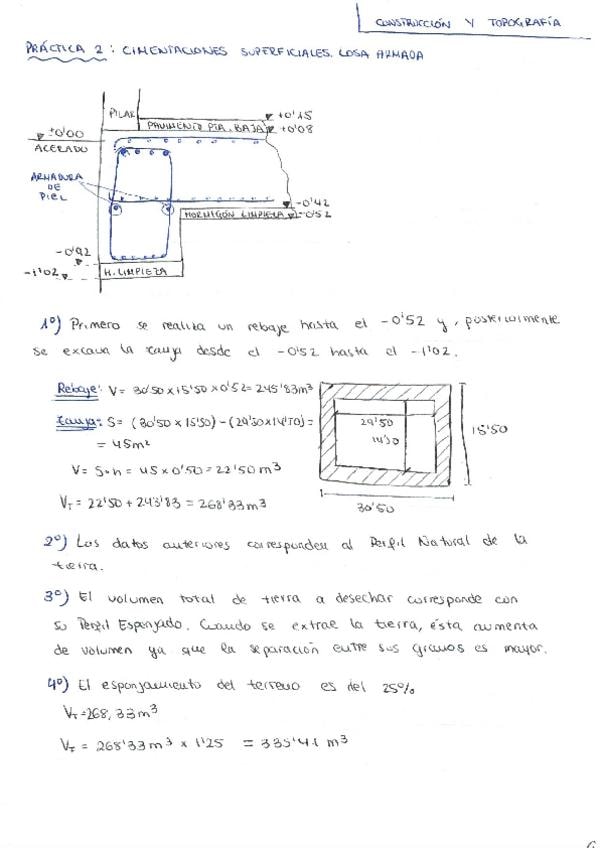 CONSTRUCCIÓN Y TOPOGRAFÍA
PRÁCTICA 2: CIMENTACIONES SUPERFICIALES. LOSA ARMADA
PILAR
+0'15
PAVIMENTO PTA. BAJA
+0'08
±0'00
ACERADO
ARMADURA
DE
PIEL
-0'42
HORMIGÓN LIMPIEZA
-0'52
-0'92
-1'02
H. LIMPIEZA
1º) Primero se realiza un rebaje hasta el -0'52 y, posteriormente
se excava la zanja desde el -0'52 hasta el -1'02.
Rebaje: V = 30'50 x 15'50 x 0'52 = 245'83 m³
Zanja: S = (30'50 x 15'50) - (29'50 x 14'50) =
= 45m²
V = S·h = 45 x 0'50 = 22'50 m³
V_T = 22'50 + 245'83 = 268'33 m³
29'50
14'50
15'50
30'50
2º) Los datos anteriores corresponden al Perfil Natural de la
tierra.
3º) El volumen total de tierra a desechar corresponde con
su Perfil Esponjado. Cuando se extrae la tierra, ésta aumenta
de volumen ya que la separación entre sus granos es mayor.
4º) El esponjamiento del terreno es del 25%
V_T = 268,33 m³
V_T = 268'33 m³ x 1'25 = 335'41 m³